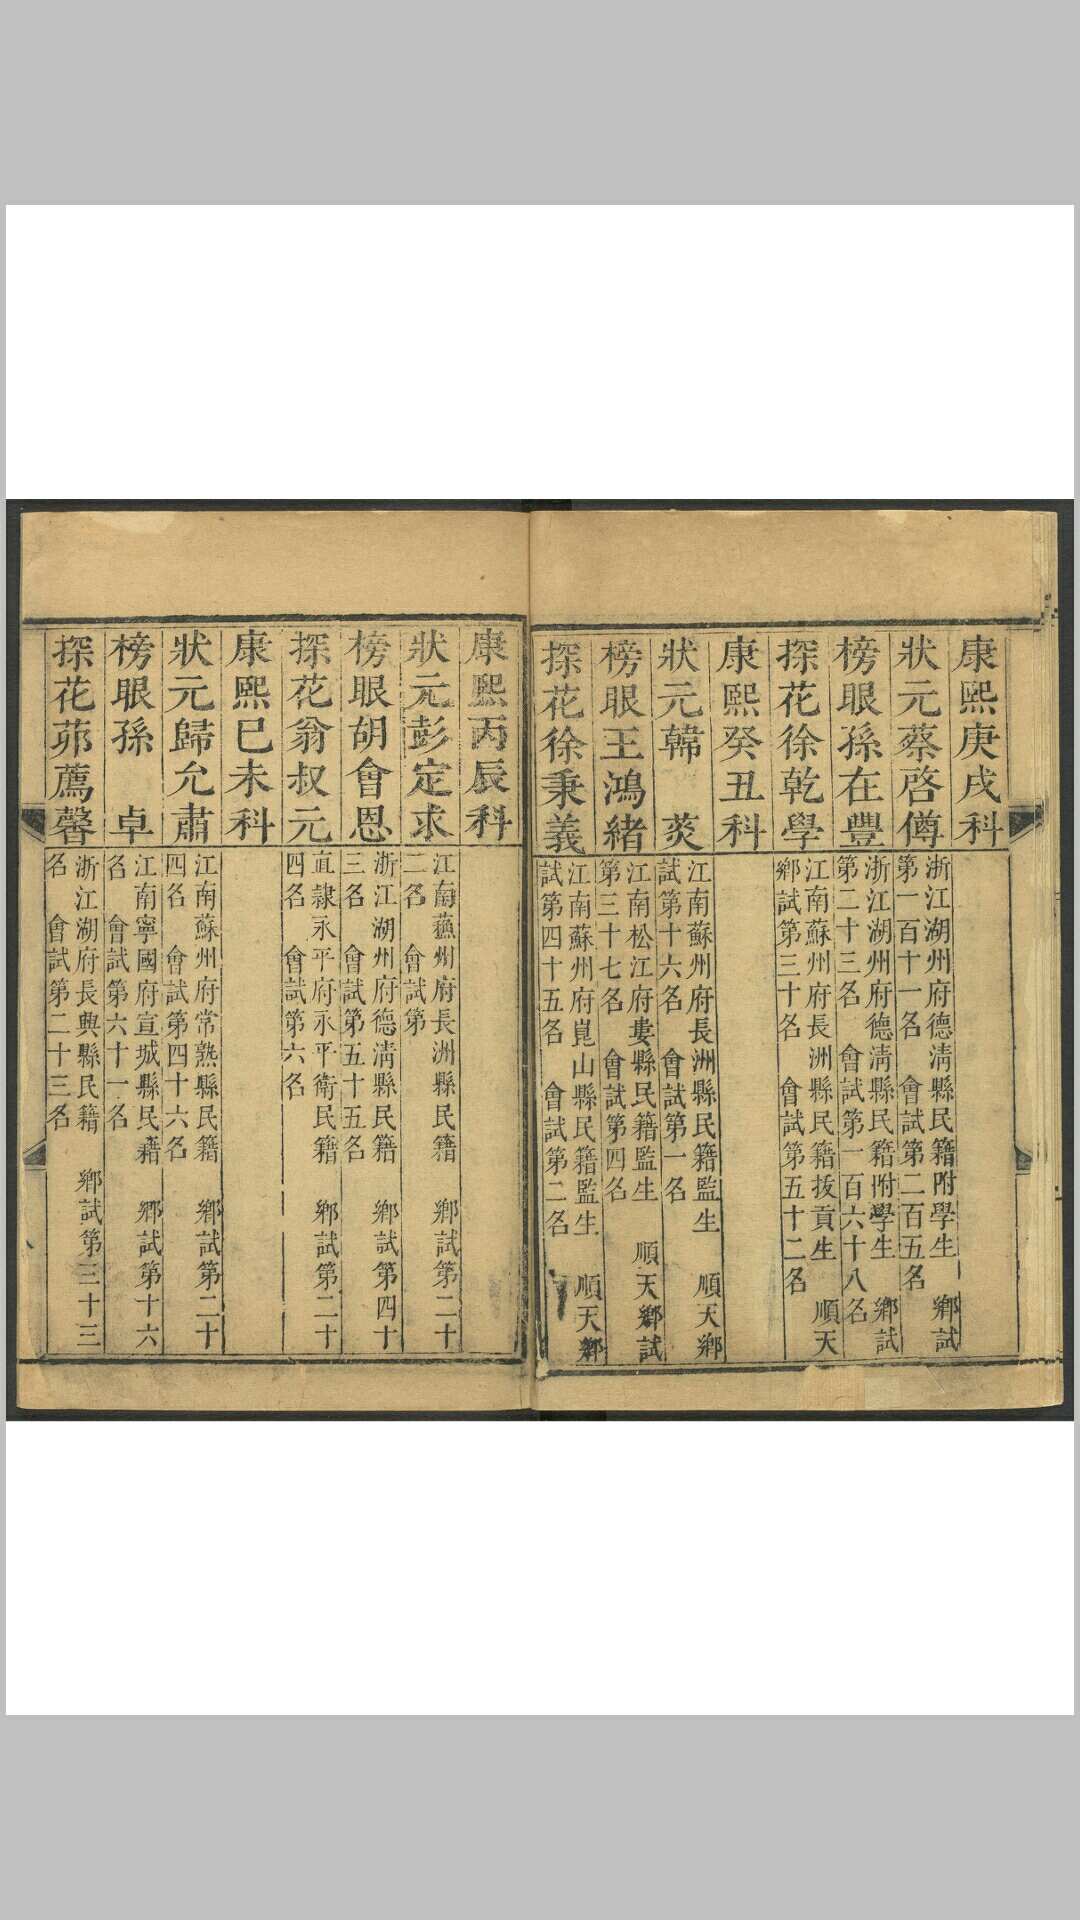 康熙庚戌科
狀元蔡啓僔
浙江湖州府德淸縣民籍附學生 鄉試
第一百十一名 會試第二百五名
榜眼孫在豐
浙江湖州府德淸縣民籍附學生 鄉試
第二十三名 會試第一百六十八名
探花徐乾學
江南蘇州府長洲縣民籍拔貢生 順天
鄉試第三十名 會試第五十二名
康熙癸丑科
狀元韓 菼
江南蘇州府長洲縣民籍監生 順天鄉
試第十六名 會試第一名
榜眼王鴻緒
江南松江府婁縣民籍監生 順天鄉試
第三十七名 會試第四名
探花徐秉義
江南蘇州府崑山縣民籍監生 順天鄉
試第四十五名 會試第二名
康熙丙辰科
狀元彭定求
江南蘓州府長洲縣民籍 鄉試第二十
二名 會試第
榜眼胡會恩
浙江湖州府德淸縣民籍 鄉試第四十
三名 會試第五十五名
探花翁叔元
直隸永平府永平衛民籍 鄉試第二十
四名 會試第六名
康熙已未科
狀元歸允肅
江南蘇州府常熟縣民籍 鄉試第二十
四名 會試第四十六名
榜眼孫 卓
江南寧國府宣城縣民籍 鄉試第十六
名 會試第六十一名
探花茆薦馨
浙江湖府長興縣民籍 鄉試第三十三
名 會試第二十三名